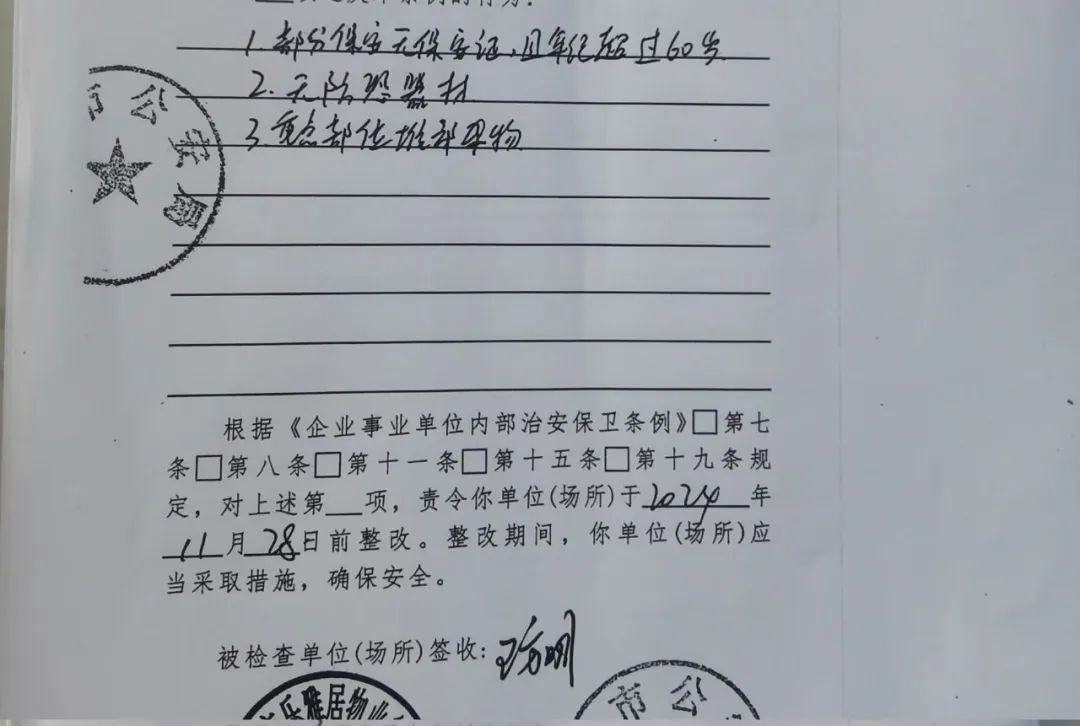 1.部分保安无保安证,且年纪超过60岁
2.无防恐器材
3.重点部位堆部果物
市公安局
根据《企业事业单位内部治安保卫条例》□第七
条□第八条□第十一条□第十五条□第十九条规
定,对上述第__项,责令你单位(场所)于2024年
11月28日前整改。整改期间,你单位(场所)应
当采取措施,确保安全。
被检查单位(场所)签收:
乐雅居物业
市公